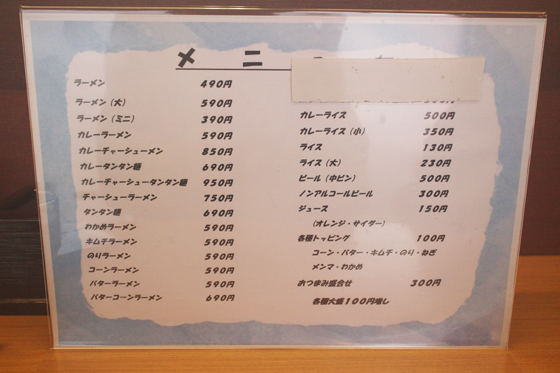 メニ
ラーメン 490円
ラーメン（大） 590円
ラーメン（ミニ） 390円
カレーラーメン 590円
カレーチャーシューメン 850円
カレータンタン麺 690円
カレーチャーシュータンタン麺 950円
チャーシューラーメン 750円
タンタン麺 690円
わかめラーメン 590円
キムチラーメン 590円
のりラーメン 590円
コーンラーメン 590円
バターラーメン 590円
バターコーンラーメン 690円
カレーライス 500円
カレーライス（小） 350円
ライス 130円
ライス（大） 230円
ビール（中ビン） 500円
ノンアルコールビール 300円
ジュース 150円
（オレンジ・サイダー）
各種トッピング 100円
コーン・バター・キムチ・のり・ねぎ
メンマ・わかめ
おつまみ盛合せ 300円
各種大盛100円増し